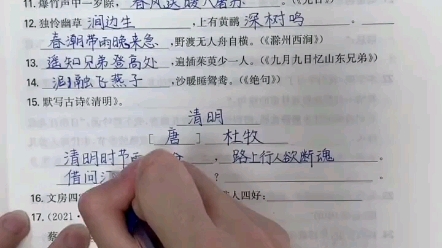 11.爆竹声中一岁除,春风送暖入屠苏
12.独怜幽草涧边生,上有黄鹂深树鸣
春潮带雨晚来急,野渡无人舟自横。《滁州西涧》
13.遥知兄弟登高处,遍插茱萸少一人。《九月九日忆山东兄弟》
14.泥融飞燕子,沙暖睡鸳鸯。《绝句》
15.默写古诗《清明》。
清明
[唐] 杜牧
清明时节雨,路上行人欲断魂
借问
16.文房四 人四好:
17.(2021·
蔡